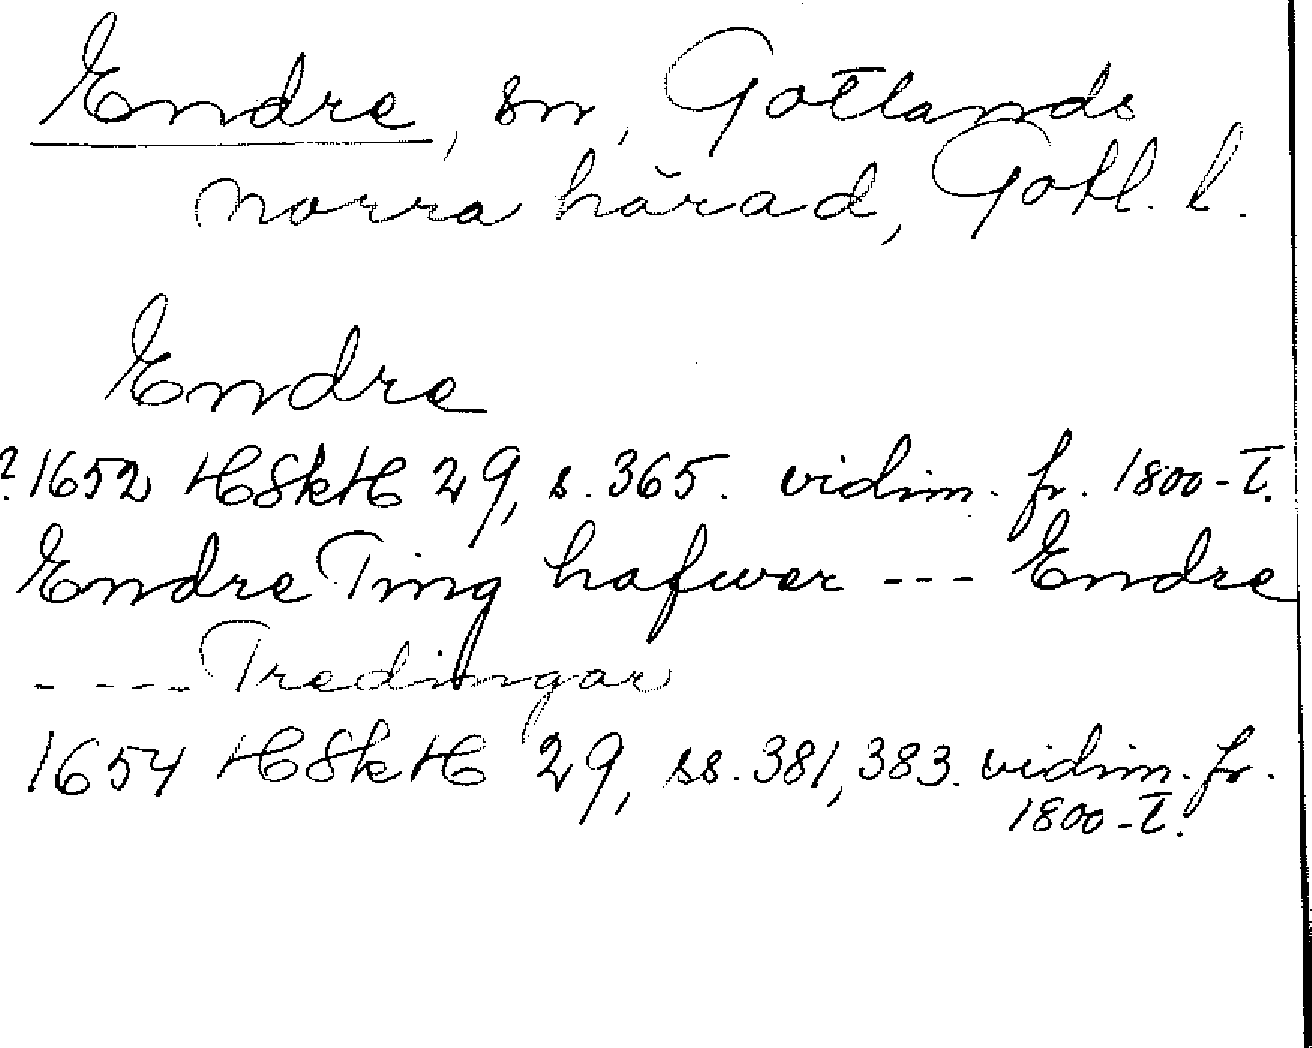 Endre, sn, Gotlands
norra härad, Gotl. l.
Endre
?1652 HSkH 29, s. 365. vidim. fr. 1800-t.
Endre Ting hafwer --- Endre
---- Tredingar
1654 HSkH 29, ss. 381, 383. vidim. fr.
1800-t.